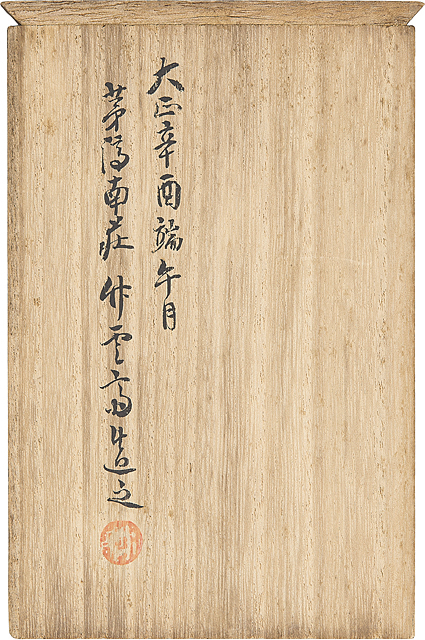 大正辛酉端午月
茅渟南荘 竹雲斎造之